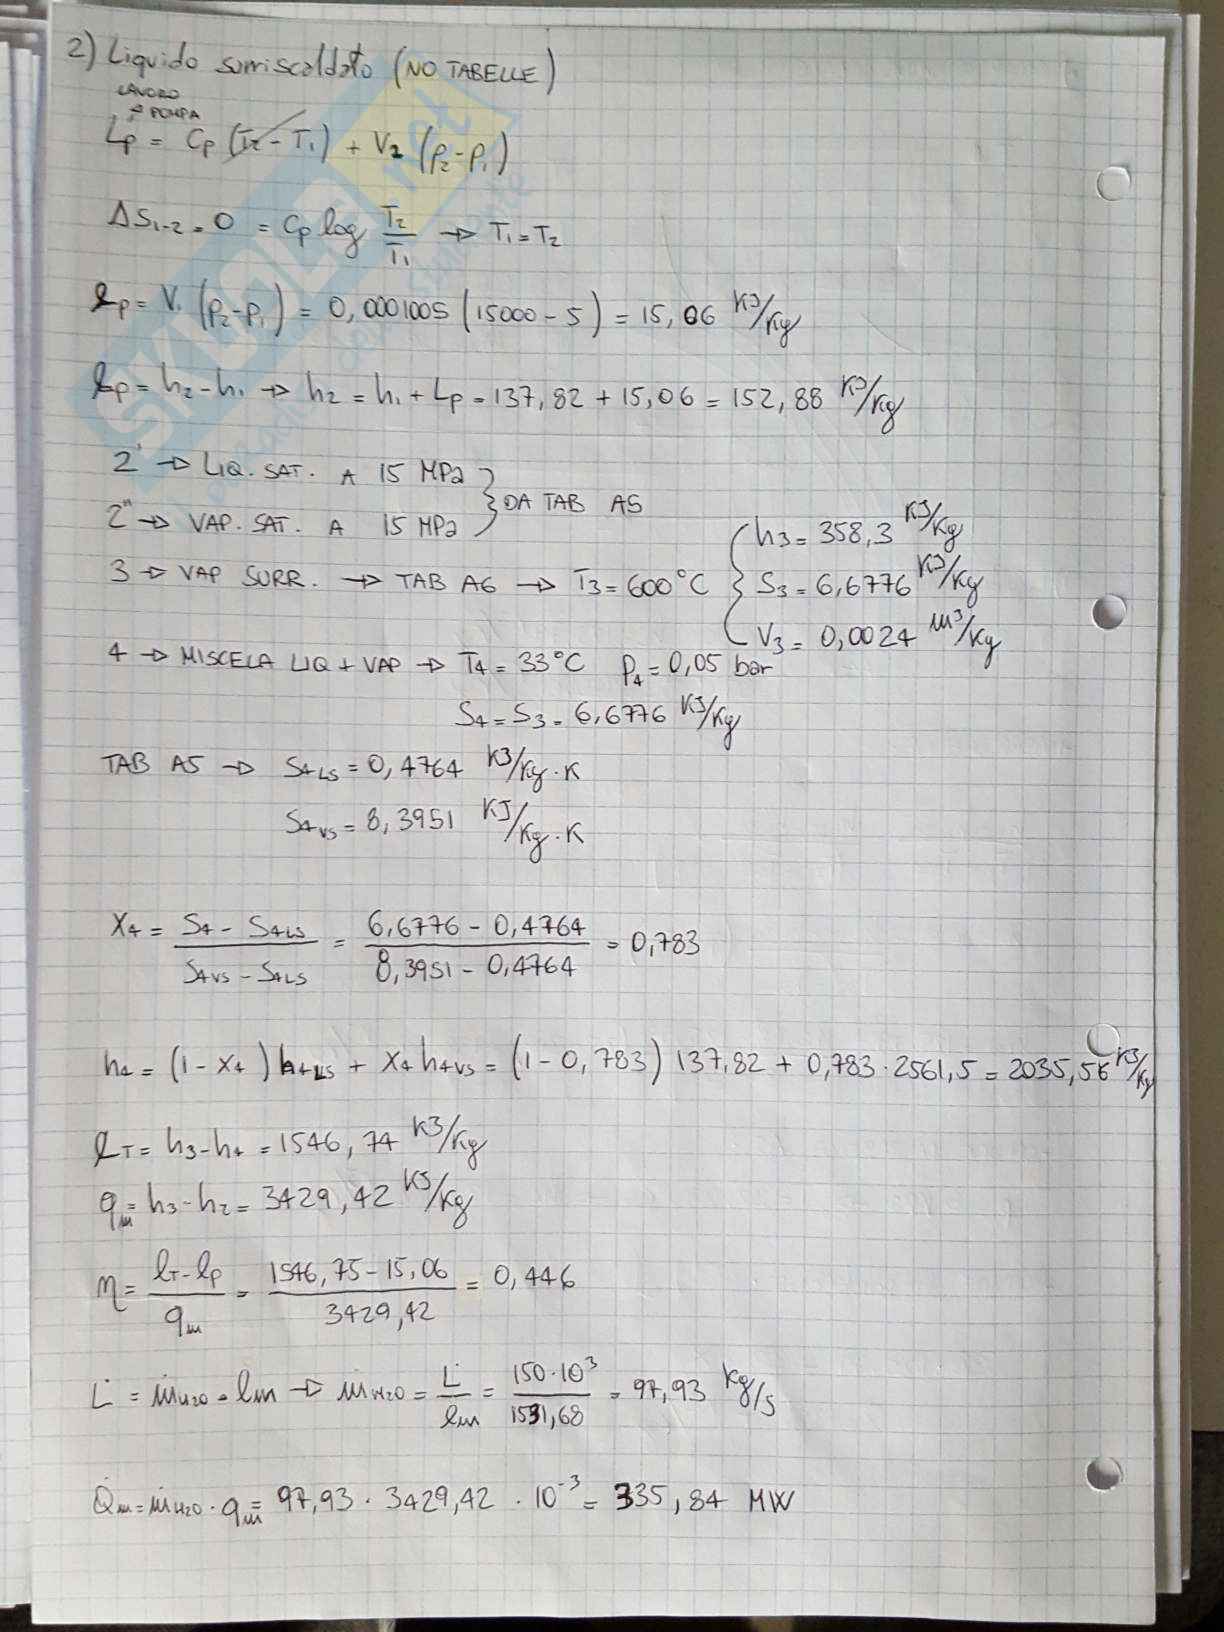 2) Liquido surriscaldato (NO TABELLE)
LAVORO
→ POMPA
Lp = Cp (T2 - T1) + V2 (P2 - P1)
ΔS1-2 = 0 = Cp log T2/T1 → T1 = T2
lp = V1 (P2 - P1) = 0,0001005 (15000 - 5) = 15,06 KJ/Kg
lp = h2 - h1 → h2 = h1 + Lp = 137,82 + 15,06 = 152,88 KJ/Kg
2' → LIQ. SAT. A 15 MPa
2" → VAP. SAT. A 15 MPa } DA TAB A5
3 → VAP SURR. → TAB A6 → T3 = 600°C { h3 = 358,3 KJ/Kg
S3 = 6,6776 KJ/Kg
V3 = 0,0024 m³/Kg
4 → MISCELA LIQ + VAP → T4 = 33°C P4 = 0,05 bar
S4 = S3 = 6,6776 KJ/Kg
TAB A5 → S4LS = 0,4764 KJ/Kg·K
S4VS = 8,3951 KJ/Kg·K
X4 = (S4 - S4LS)/(S4VS - S4LS) = (6,6776 - 0,4764)/(8,3951 - 0,4764) = 0,783
h4 = (1 - X4) h4LS + X4 h4VS = (1 - 0,783) 137,82 + 0,783 · 2561,5 = 2035,56 KJ/Kg
lT = h3 - h4 = 1546,74 KJ/Kg
qm = h3 - h2 = 3429,42 KJ/Kg
η = (lT - lp)/qm = (1546,75 - 15,06)/3429,42 = 0,446
L̇ = ṁH2O = lm → ṁH2O = L̇/lm = 150·10³/1531,68 = 97,93 kg/s
Q̇m = ṁH2O · qm = 97,93 · 3429,42 · 10⁻³ = 335,84 MW
SKUOLA.net